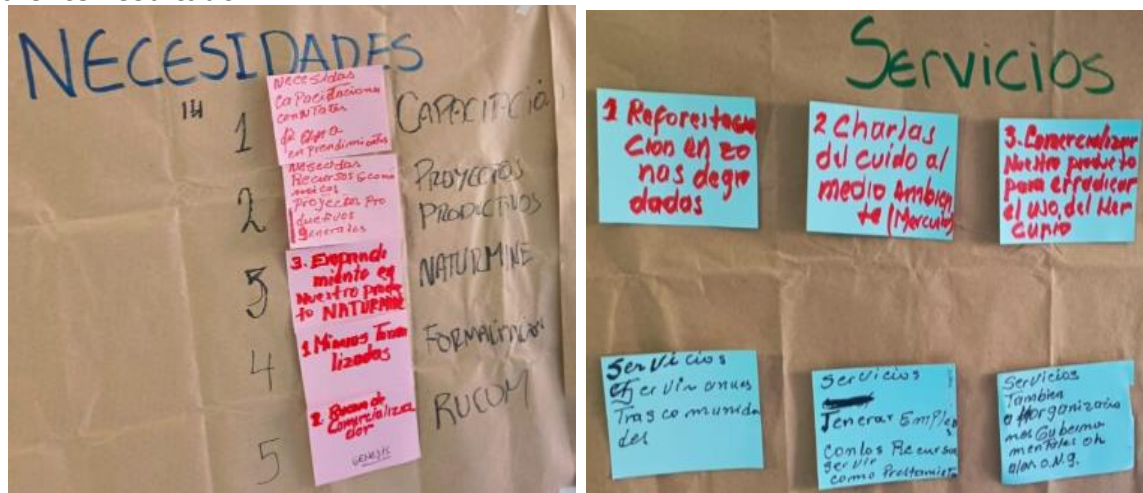 NECESIDADES
14
1
Necesidas
CaPacitaciones
en prendimientos
CAPACITACIÓN
2
Necesidas
Recursos Econo
micos
Proyectos Pro
ductivos
generales
PROYECTOS
PRODUCTIVOS
3
3. Emprendi
miento en
Nuestro produc
to NATURMINE
NATURMINE
4
1 Mineros Forma
lizados
FORMALIZACION
5
2 Rucom de
Comercializa
dor
GENESIS
RUCOM
Servicios
1 Reforestacio
Cion en zo
nas degra
dadas
2 Charlas
del cuido al
medio Ambien
te (Mercurio)
3. Comercializar
Nuestro producto
para erradicar
el uso, del Mer
curio
Servicios
Servir a nues
Tras comunida
des
Servicios
Jenerar Empleo
Con los Recursos
servir
como Prestamista
Servicios
Tambien
a Horganizacio
nes Guberna
mentales oh
a las o.N.g.